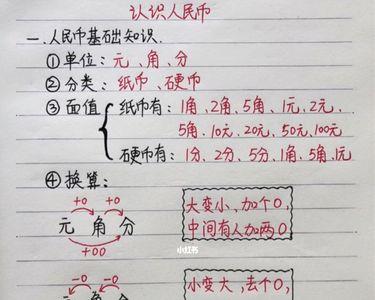 认识人民币
一.人民币基础知识.
①单位:元、角、分
②分类:纸币、硬币
③面值 纸币有:1角、2角、5角、1元、2元、
5角.10元、20元、50元、100元
硬币有:1分、2分、5分、1角、5角、1元
④换算:
+0 +0
元 角 分
+00
大变小,加个0,
中间有人加两0
小红书
-0 -0
小变大,去个0,